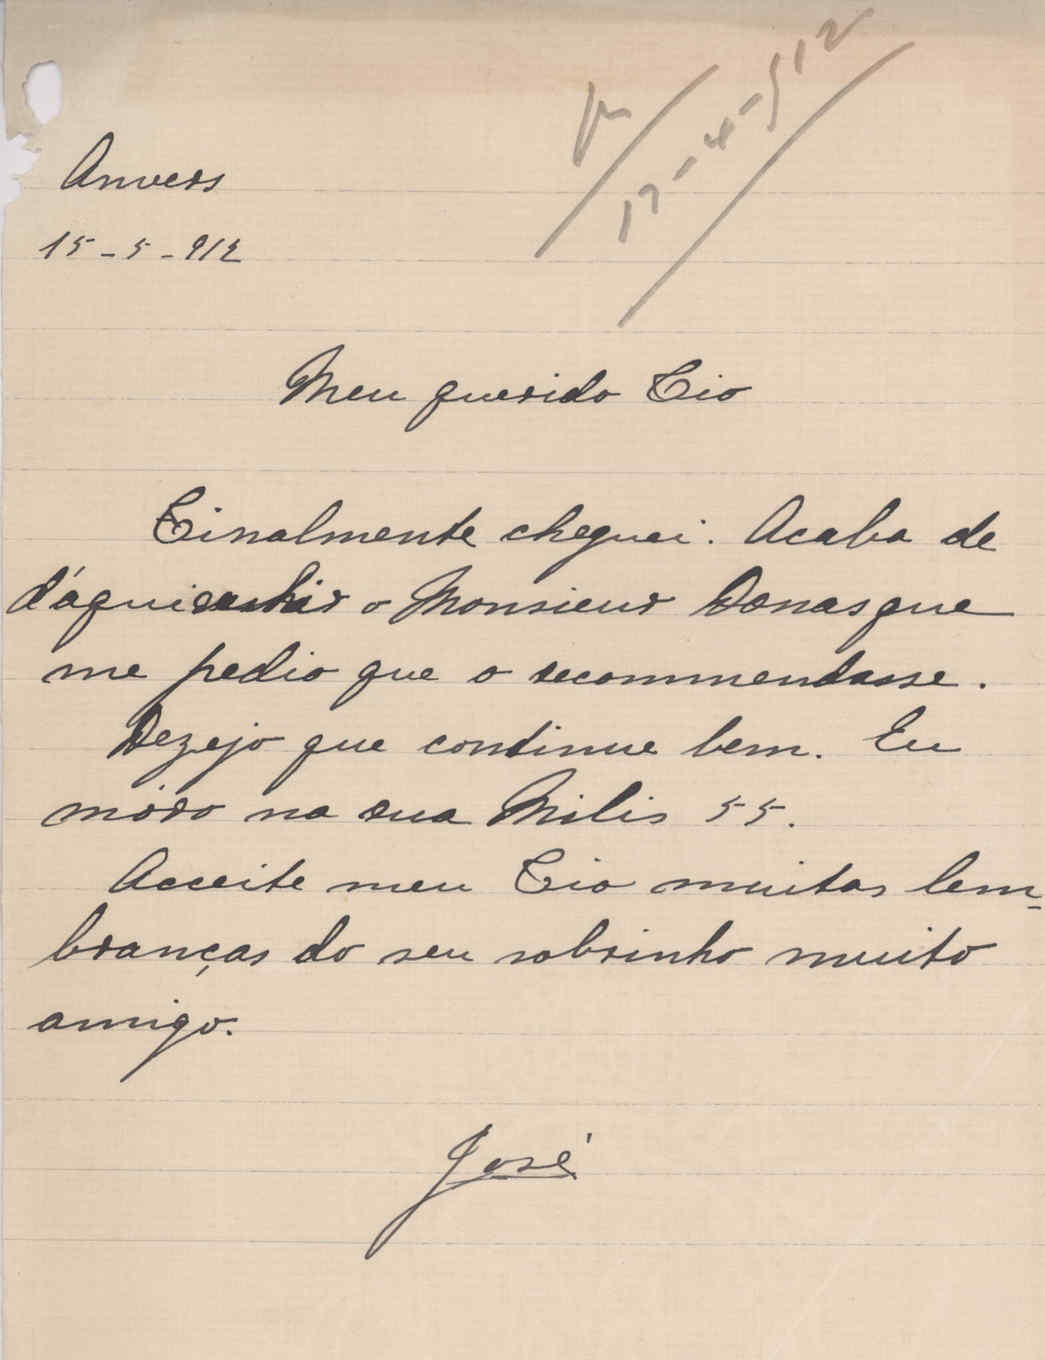 R
17-4-912
Anvers
15-5-912
Meu querido Tio
Finalmente cheguei. Acaba de
d'aqui sahir o Monsieur Donas que
me pedio que o recommendasse.
Dezejo que continue bem. Eu
móro na rua Milis 55.
Acceite meu Tio muitas lem-
branças do seu sobrinho muito
amigo.
José